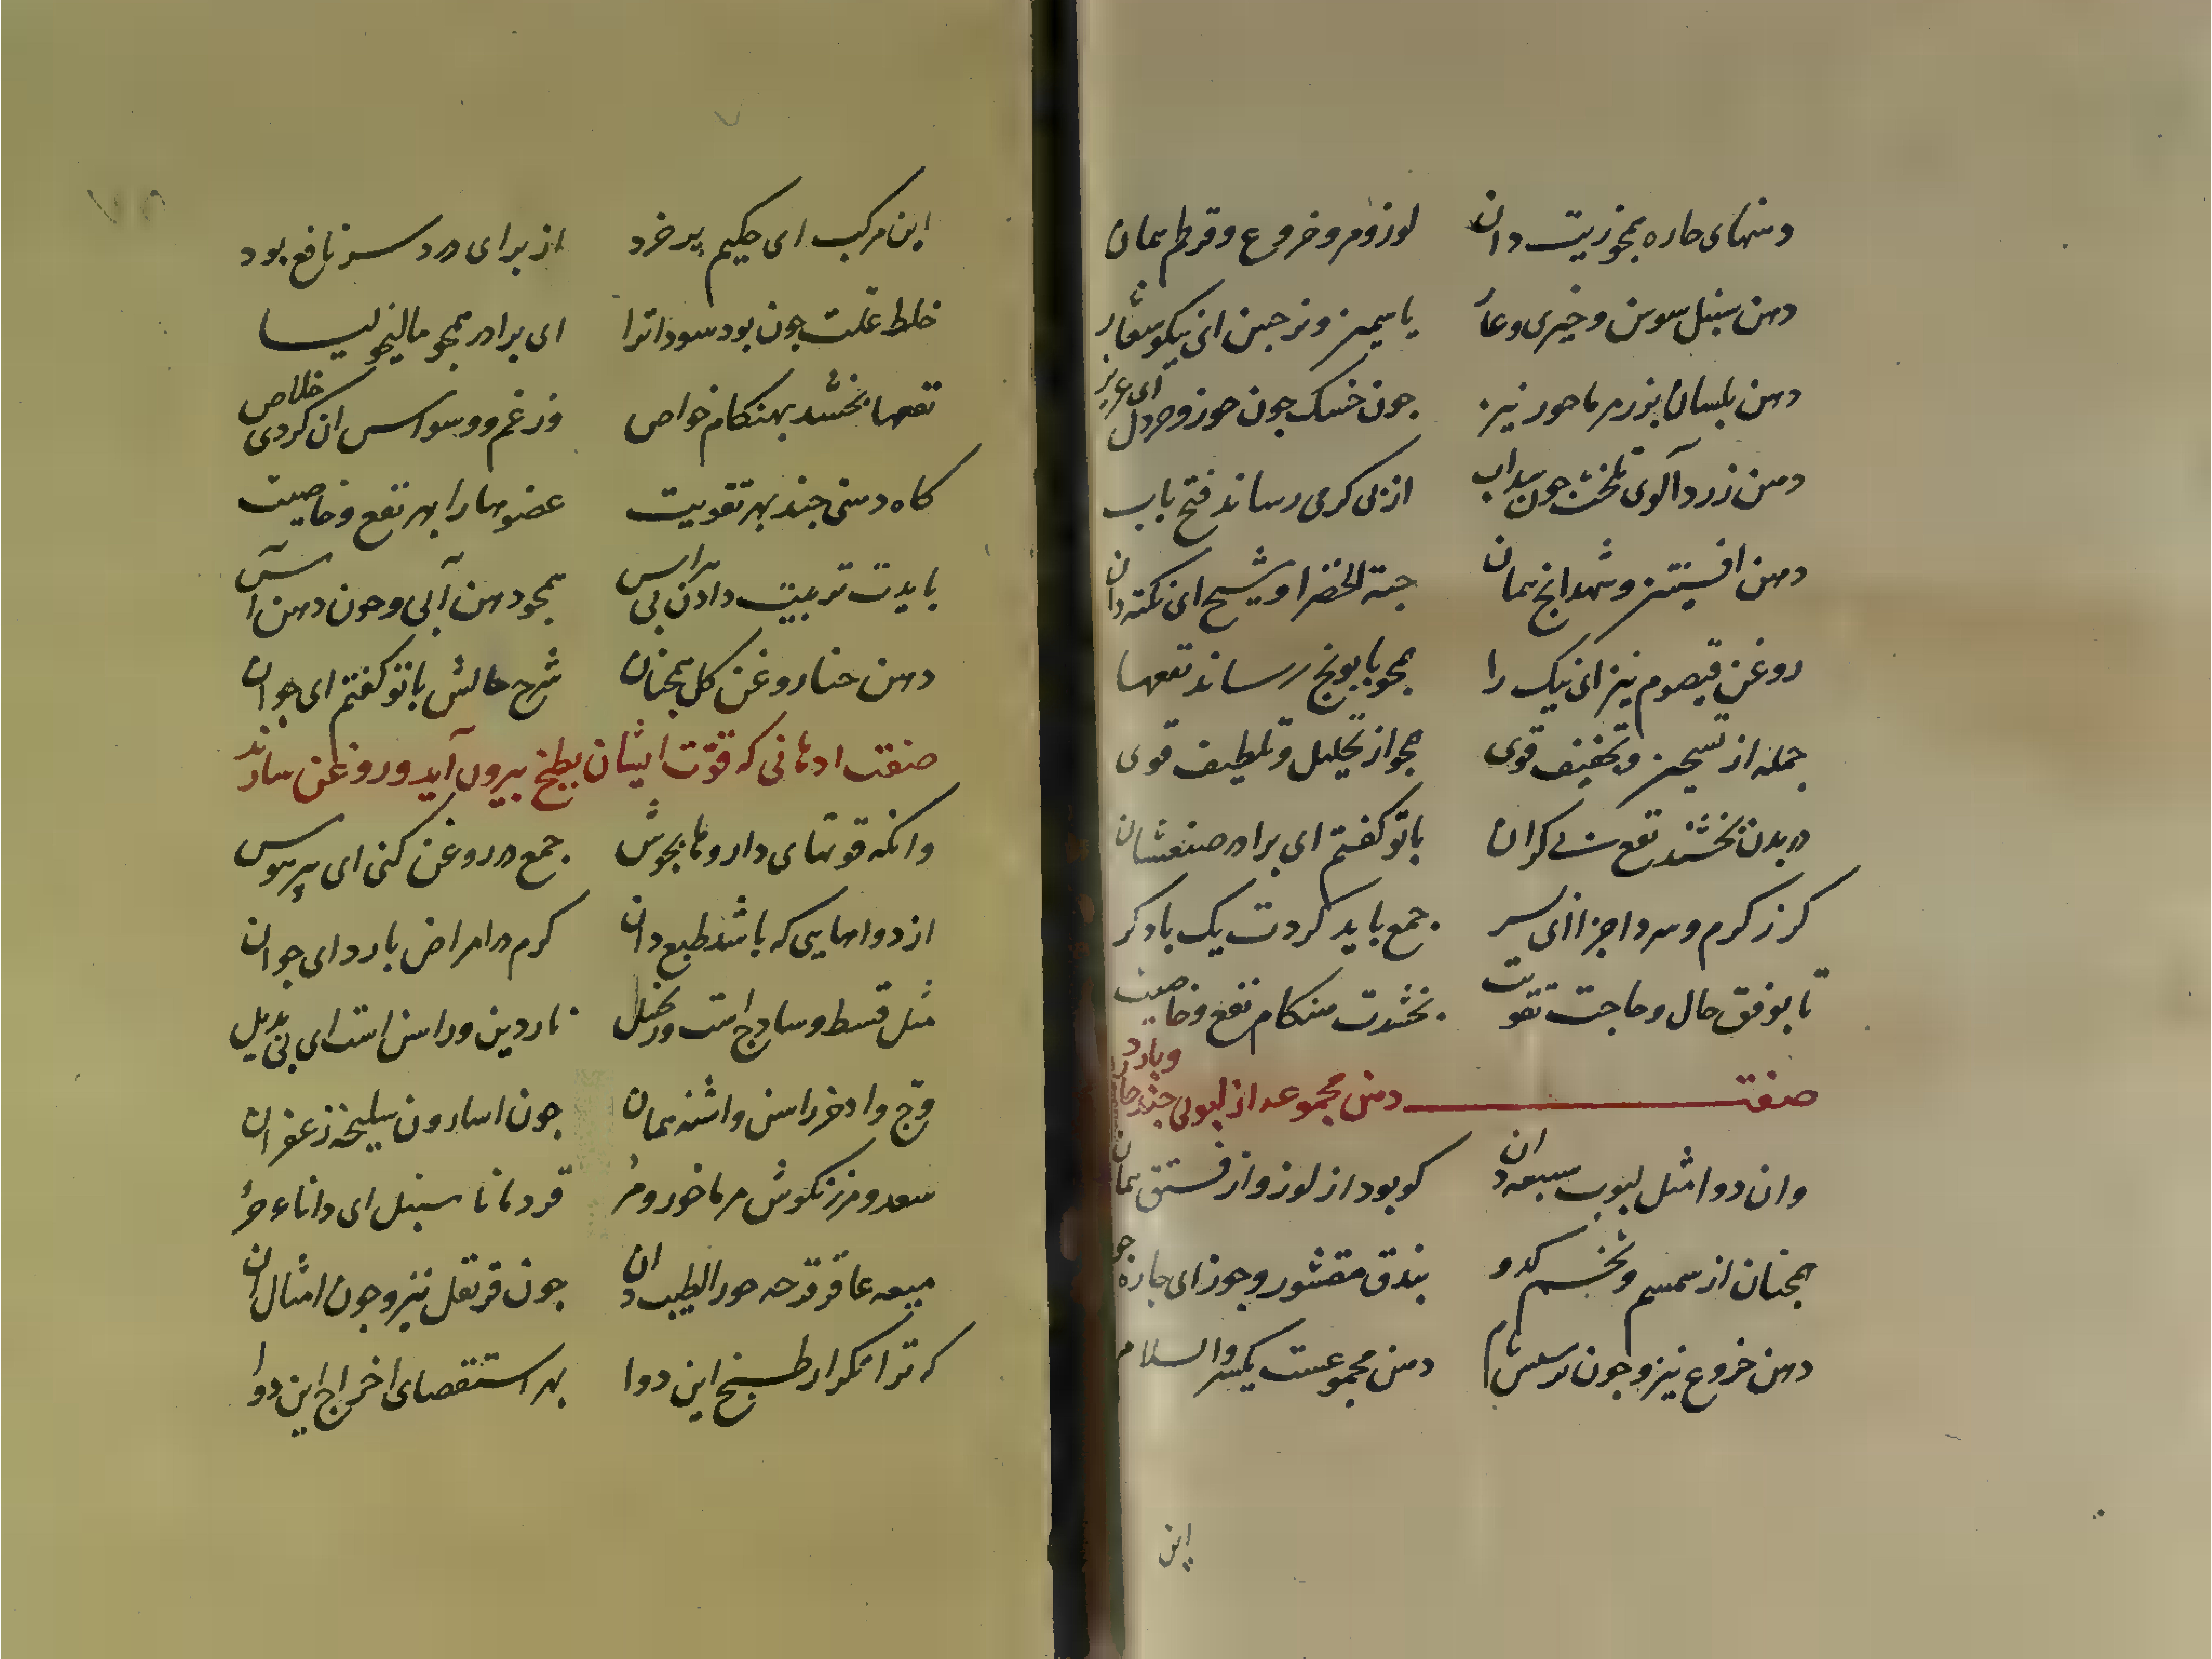 دهنهای حاره همچو زیت دان لوز و مر و خروع و قرطم همان
دهن سنبل سوسن و خیری و غار یاسمین و نرجس ای نیکو شعار
دهن بلسان بزر مرماحور نیز چون خسک چون جوز و خردل ای عزیز
دهن زردآلوی تلخش چون سداب از پی گرمی رساند فتح باب
دهن افسنتین و شهدانج همان حبة الخضرا و شیح ای نکته دان
روغن قیصوم نیز ای نیک را همچو بابونج رساند نفعها
جمله از تسخین و تخفیف قوی همچو از تحلیل و تلطیف قوی
در بدن بخشند نفع بی کران با تو گفتم ای برادر صنعتشان
گر ز گرم و سرد اجزا ای پسر جمع باید کردت یک با دگر
تا بوفق حال و حاجت تقویت بخشدت هنگام نفع و خاصیت
صفت دهن مجموعه از لبوبی چند حار و بارد
وان دوا مثل لبوب سبعه دان کو بود از لوز و از فستق همان
همچنان از سمسم و تخم کدو بندق مقشور و جوز ای چاره جو
دهن خروع نیز و چون نرسش تمام دهن مجموعست یکسر والسلام
این
این مرکب ای حکیم پر خرد از برای درد سر نافع بود
خلط علت چون بود سودا ترا ای برادر همچو مالیخولیا
نفعها بخشد بهنگام خواص وز غم و وسواس ازان گردی خلاص
گاه دهنی چند بهر تقویت عضوها را بهر نفع و خاصیت
بایدت تربیت دادن بی هراس همچو دهن آبی و چون دهن آس
دهن حنا روغن گل همچنان شرح حالش با تو گفتم ای جوان
صفت ادهانی که قوّت ایشان بطبخ بیرون آید و روغن سازند
وانکه قوتهای داروها بجوش جمع در روغن کنی ای پر هوس
از دواهایی که باشد طبع دان گرم در امراض بارد ای جوان
مثل قسط و سادج است و زنجبیل ناردین و راسن است ای بی بدیل
وج و اذخر راسن و اشنه همان چون اسارون سلیخه زعفران
سعد و مرزنگوش مرماخور و مر قردمانا سنبل ای دانای حر
میعه عاقرقرحه جوز الطیب دان چون قرنفل نیز و چون امثال آن
که ترا تکرار طبخ این دوا بهر استقصای اخراج این دوا